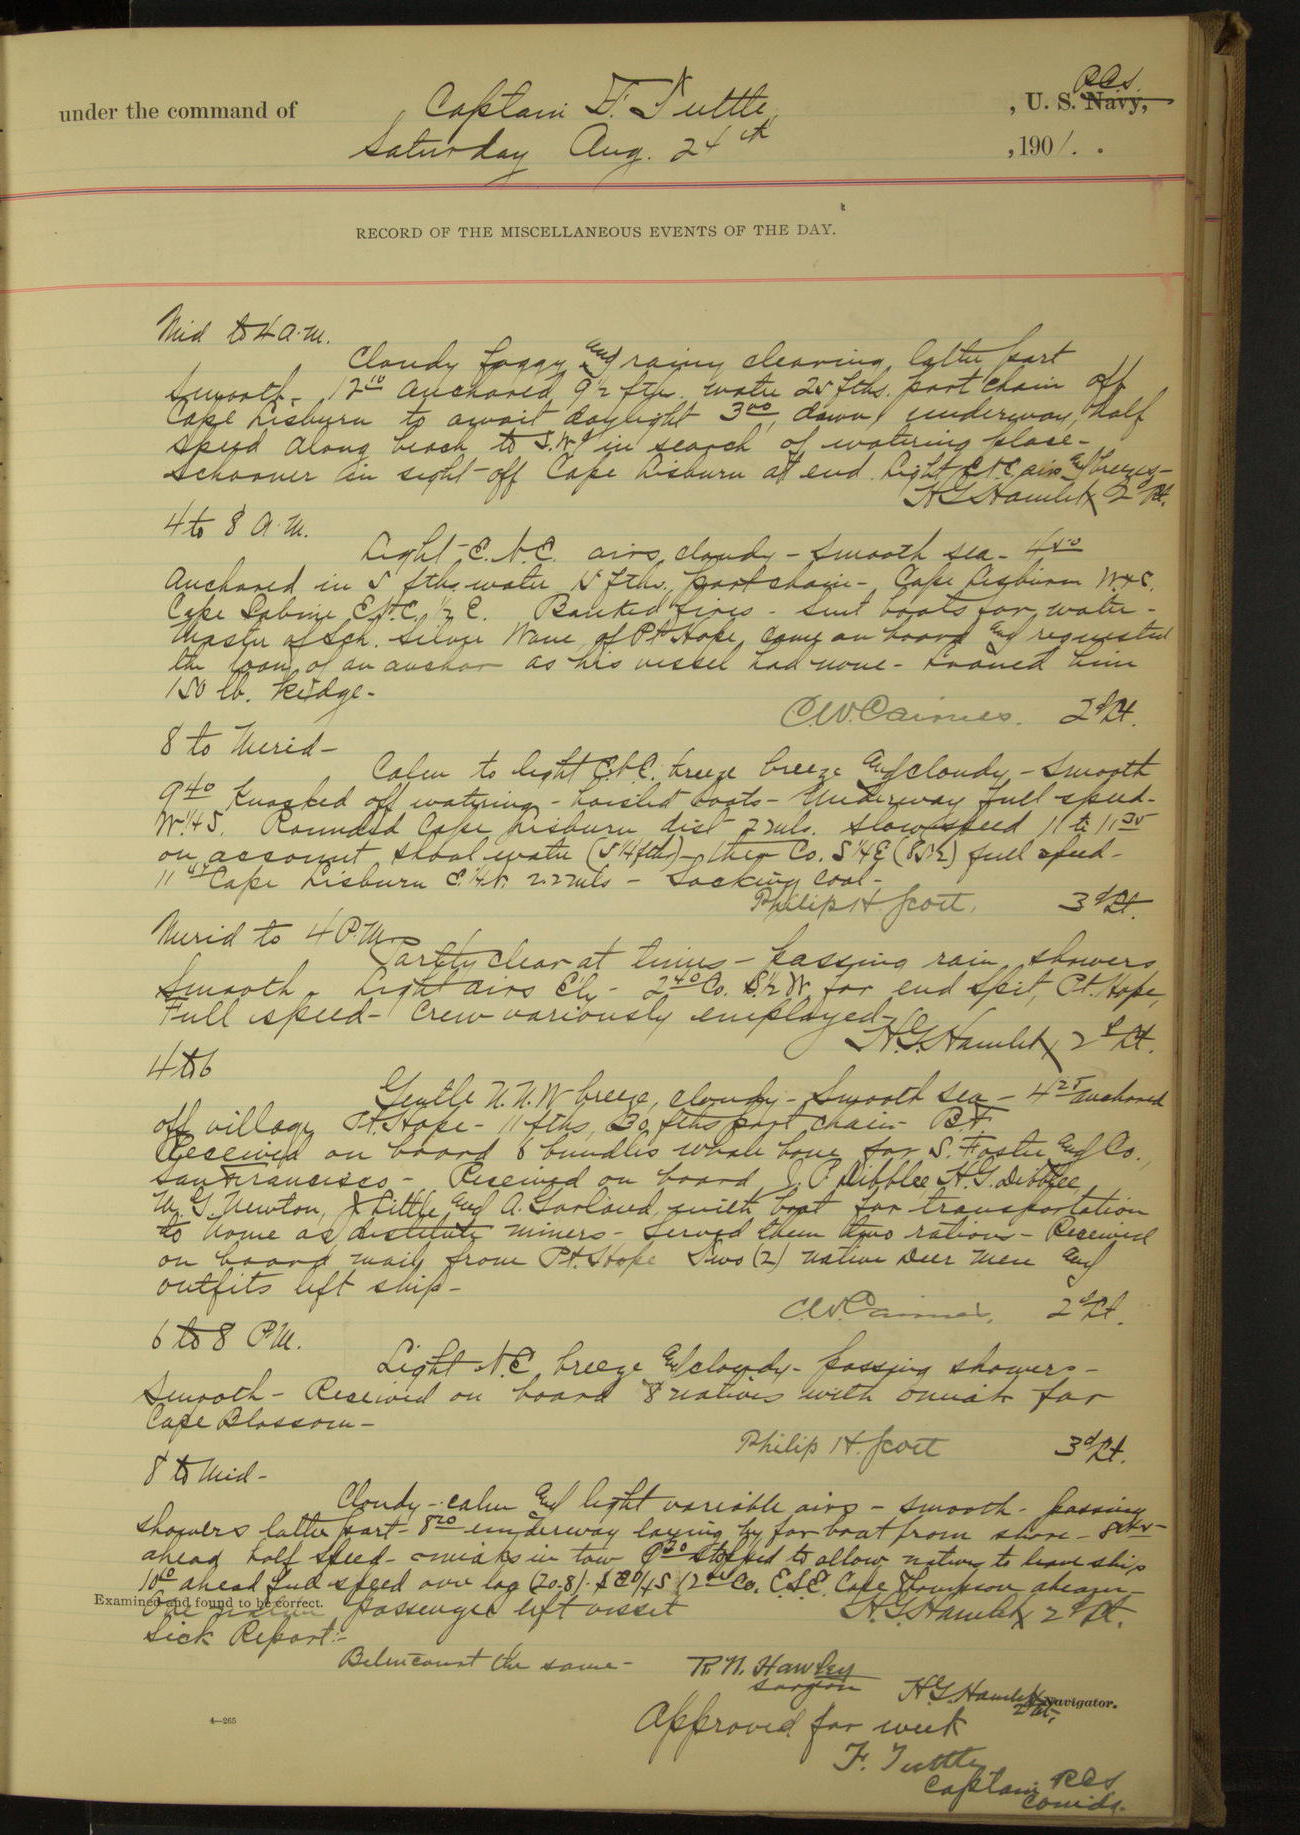 R.C.S.
under the command of Captain F. Tuttle, U. S. Navy,
Saturday Aug. 24th, 1901.
RECORD OF THE MISCELLANEOUS EVENTS OF THE DAY.
Mid to 4 a.m.
Cloudy foggy and rainy clearing latter part
Smooth. 12 10 anchored 9 1/2 ftm. water 25 fths. port chain off
Cape Lisburn to await daylight 3 00, dawn, underway, half
speed along beach to S.W'd in search of watering place-
Schooner in sight off Cape Lisburn at end. Light E.N.E. airs and breezes-
H.G. Hamlet 2d Lt.
4 to 8 a.m.
Light E.N.E. airs, cloudy - Smooth sea - 4 50
Anchored in 5 fths. water 15 fths. port chain - Cape Lisburn
Cape Sabine E.N.E. 1/2 E. Banked fires - Sent boats for water -
Master of Sch. Silver Wave of Pt. Hope, came on board and requested
the loan of an anchor as his vessel had none - Loaned him
150 lb. Kedge -
C.W. Cairnes. 2d Lt.
8 to Merid -
Calm to light E.N.E. breeze breeze and cloudy - Smooth
9 40 Knocked off watering - hoisted boats - Underway full speed -
W. 1/4 S. Rounded Cape Lisburn dist 2 mls. slow speed 11 to 11 25
on account shoal water (5 1/4 fths) - then Co. S 1/4 E full speed -
11 45 Cape Lisburn E. 1/4 N. 2.2 mls - Sacking coal -
Philip H. Scott. 3d Lt.
Merid to 4 P.M.
Partly clear at times - passing rain showers
Smooth. Light airs E'ly - 2 40 Co. S. 1/2 W. for end spit, Pt. Hope,
Full speed - Crew variously employed -
H.G. Hamlet 2d Lt.
4 to 6
Gentle N.N.W. breeze, cloudy - Smooth sea - 4 25 anchored
off village Pt. Hope - 11 fths, 30 fths port chain - B.F.
Received on board 6 bundles whale bone for S. Foster and Co.,
San Francisco - Received on board J. P. Dibblee, H.G. Dibblee,
W. G. Newton, J. Little and A. Garland, with boat for transportation
to Nome as destitute miners - Served them two rations - Received
on board mail from Pt. Hope Two (2) native Deer men and
outfits left ship -
C.W. Cairnes. 2d Lt.
6 to 8 P.M.
Light N.E. breeze and cloudy - passing showers -
Smooth - Received on board 8 natives with omiak for
Cape Blossom -
Philip H. Scott 3d Lt.
8 to Mid -
Cloudy - calm and light variable airs - smooth - passing
showers latter part - 8 20 underway laying by for boat from shore -
ahead half speed - omiaks in tow 9 30 stopped to allow natives to leave ship
10 40 ahead full speed over log (20.8). Co. E.S.E. Cape Thompson abeam -
Examined and found to be correct.
One native passenger left vessel
H.G. Hamlet 2d Lt.
Sick Report:-
Belincourt the same -
R. N. Hawley
Surgeon
H.G. Hamlet
2d Lt. Navigator.
Approved for week
4—265
F. Tuttle
Captain R.C.S.
Comdg.